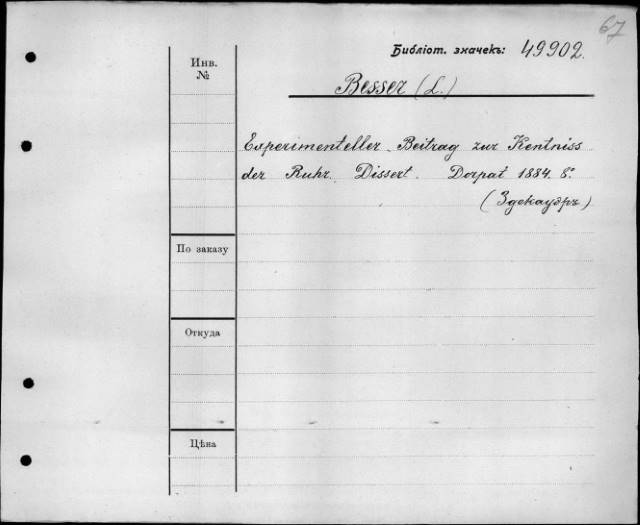 67
Библіот. значекъ: 49902.
Инв.
№
Besser (L.)
Experimenteller Beitrag zur Kentniss
der Ruhr. Dissert. Dorpat 1884. 8°
(Здекауэръ)
По заказу
Откуда
Цѣна